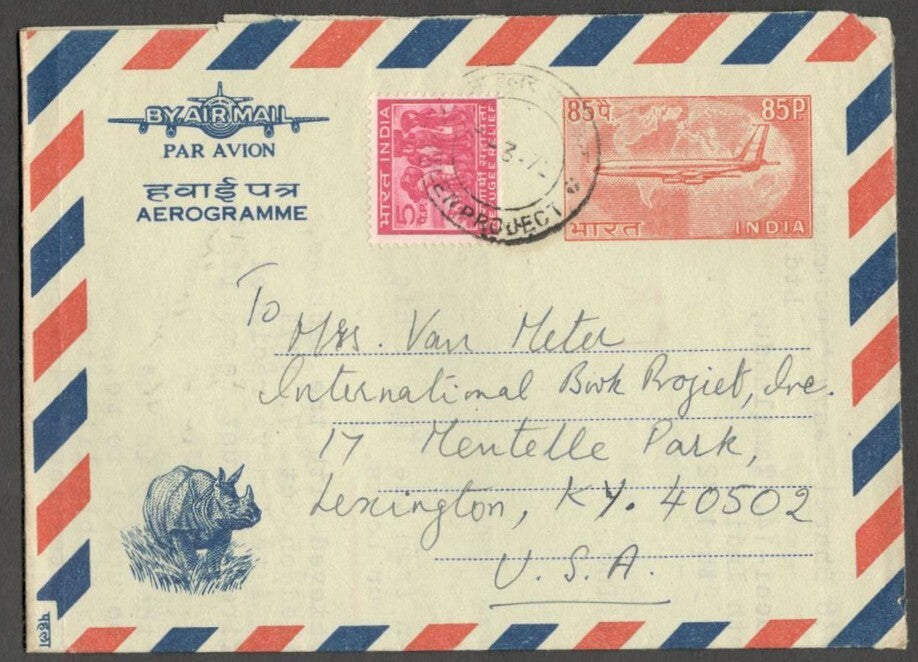 BY AIR MAIL
PAR AVION
हवाई पत्र
AEROGRAMME
भारत INDIA
5 P.P.
REFUGEE RELIEF
3-7
PROJECT
85पै. 85P
भारत INDIA
To
Mrs. Van Meter
International Book Projiet, Inc.
17 Mentelle Park,
Lexington, KY. 40502
U.S.A.